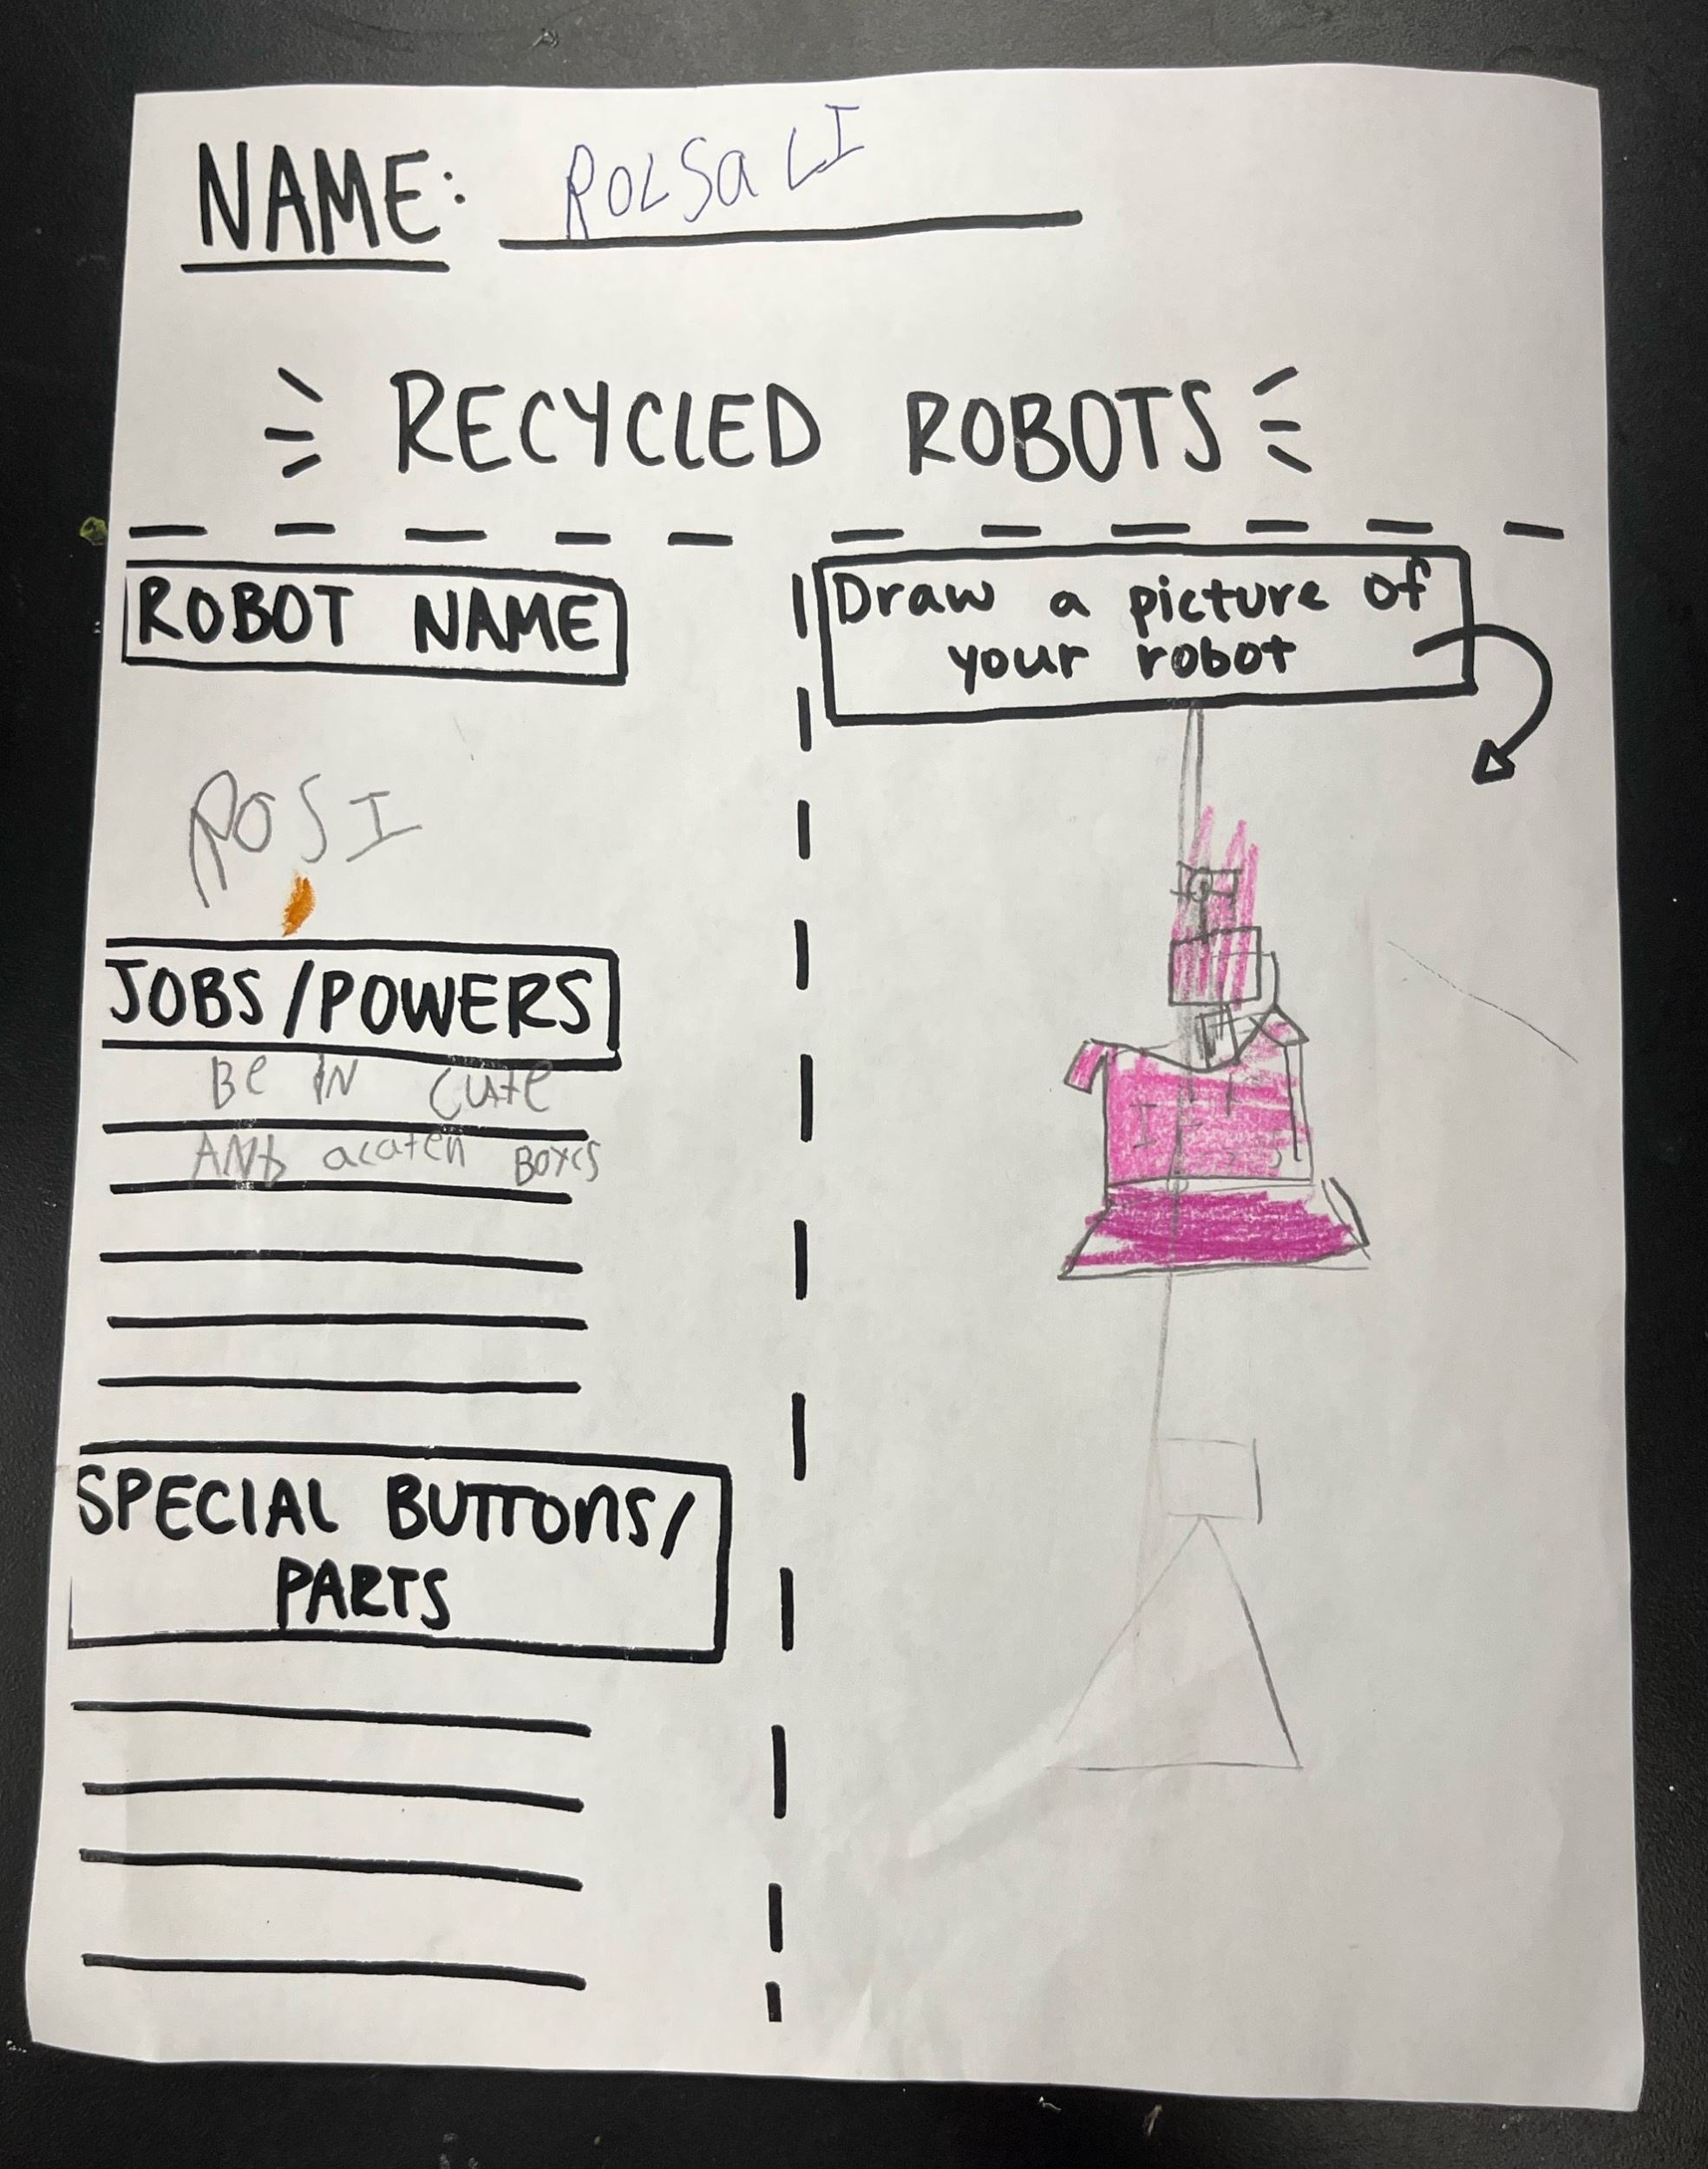 NAME: ROLSaLI
RECYCLED ROBOTS
ROBOT NAME
ROSI
JOBS/POWERS
Be IN cute
AND acaten Boxes
SPECIAL BUTTONS/
PARTS
Draw a picture of
your robot